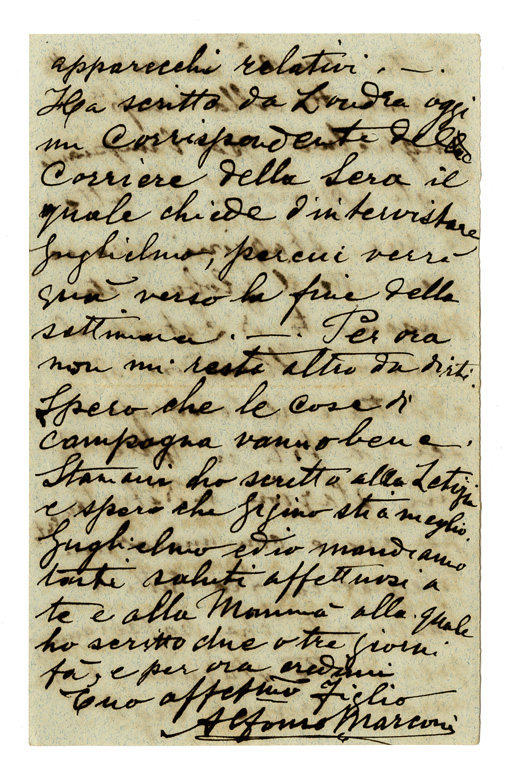 apparecchi relativi. —.
Ha scritto da Londra oggi
un Corrispondente del
Corriere della Sera il
quale chiede d'intervistare
Guglielmo, percui verrà
quà verso la fine della
settimana. —. Per ora
non mi resta altro da dirti.
Spero che le cose di
campagna vanno bene.
Stamani ho scritto alla Letizia
e spero che Gigino stia meglio.
Guglielmo ed io mandiamo
tanti saluti affettuosi a
te e alla Mamma alla quale
ho scritto due o tre giorni
fà, e per ora credimi
Tuo affetmo Figlio
Alfonso Marconi